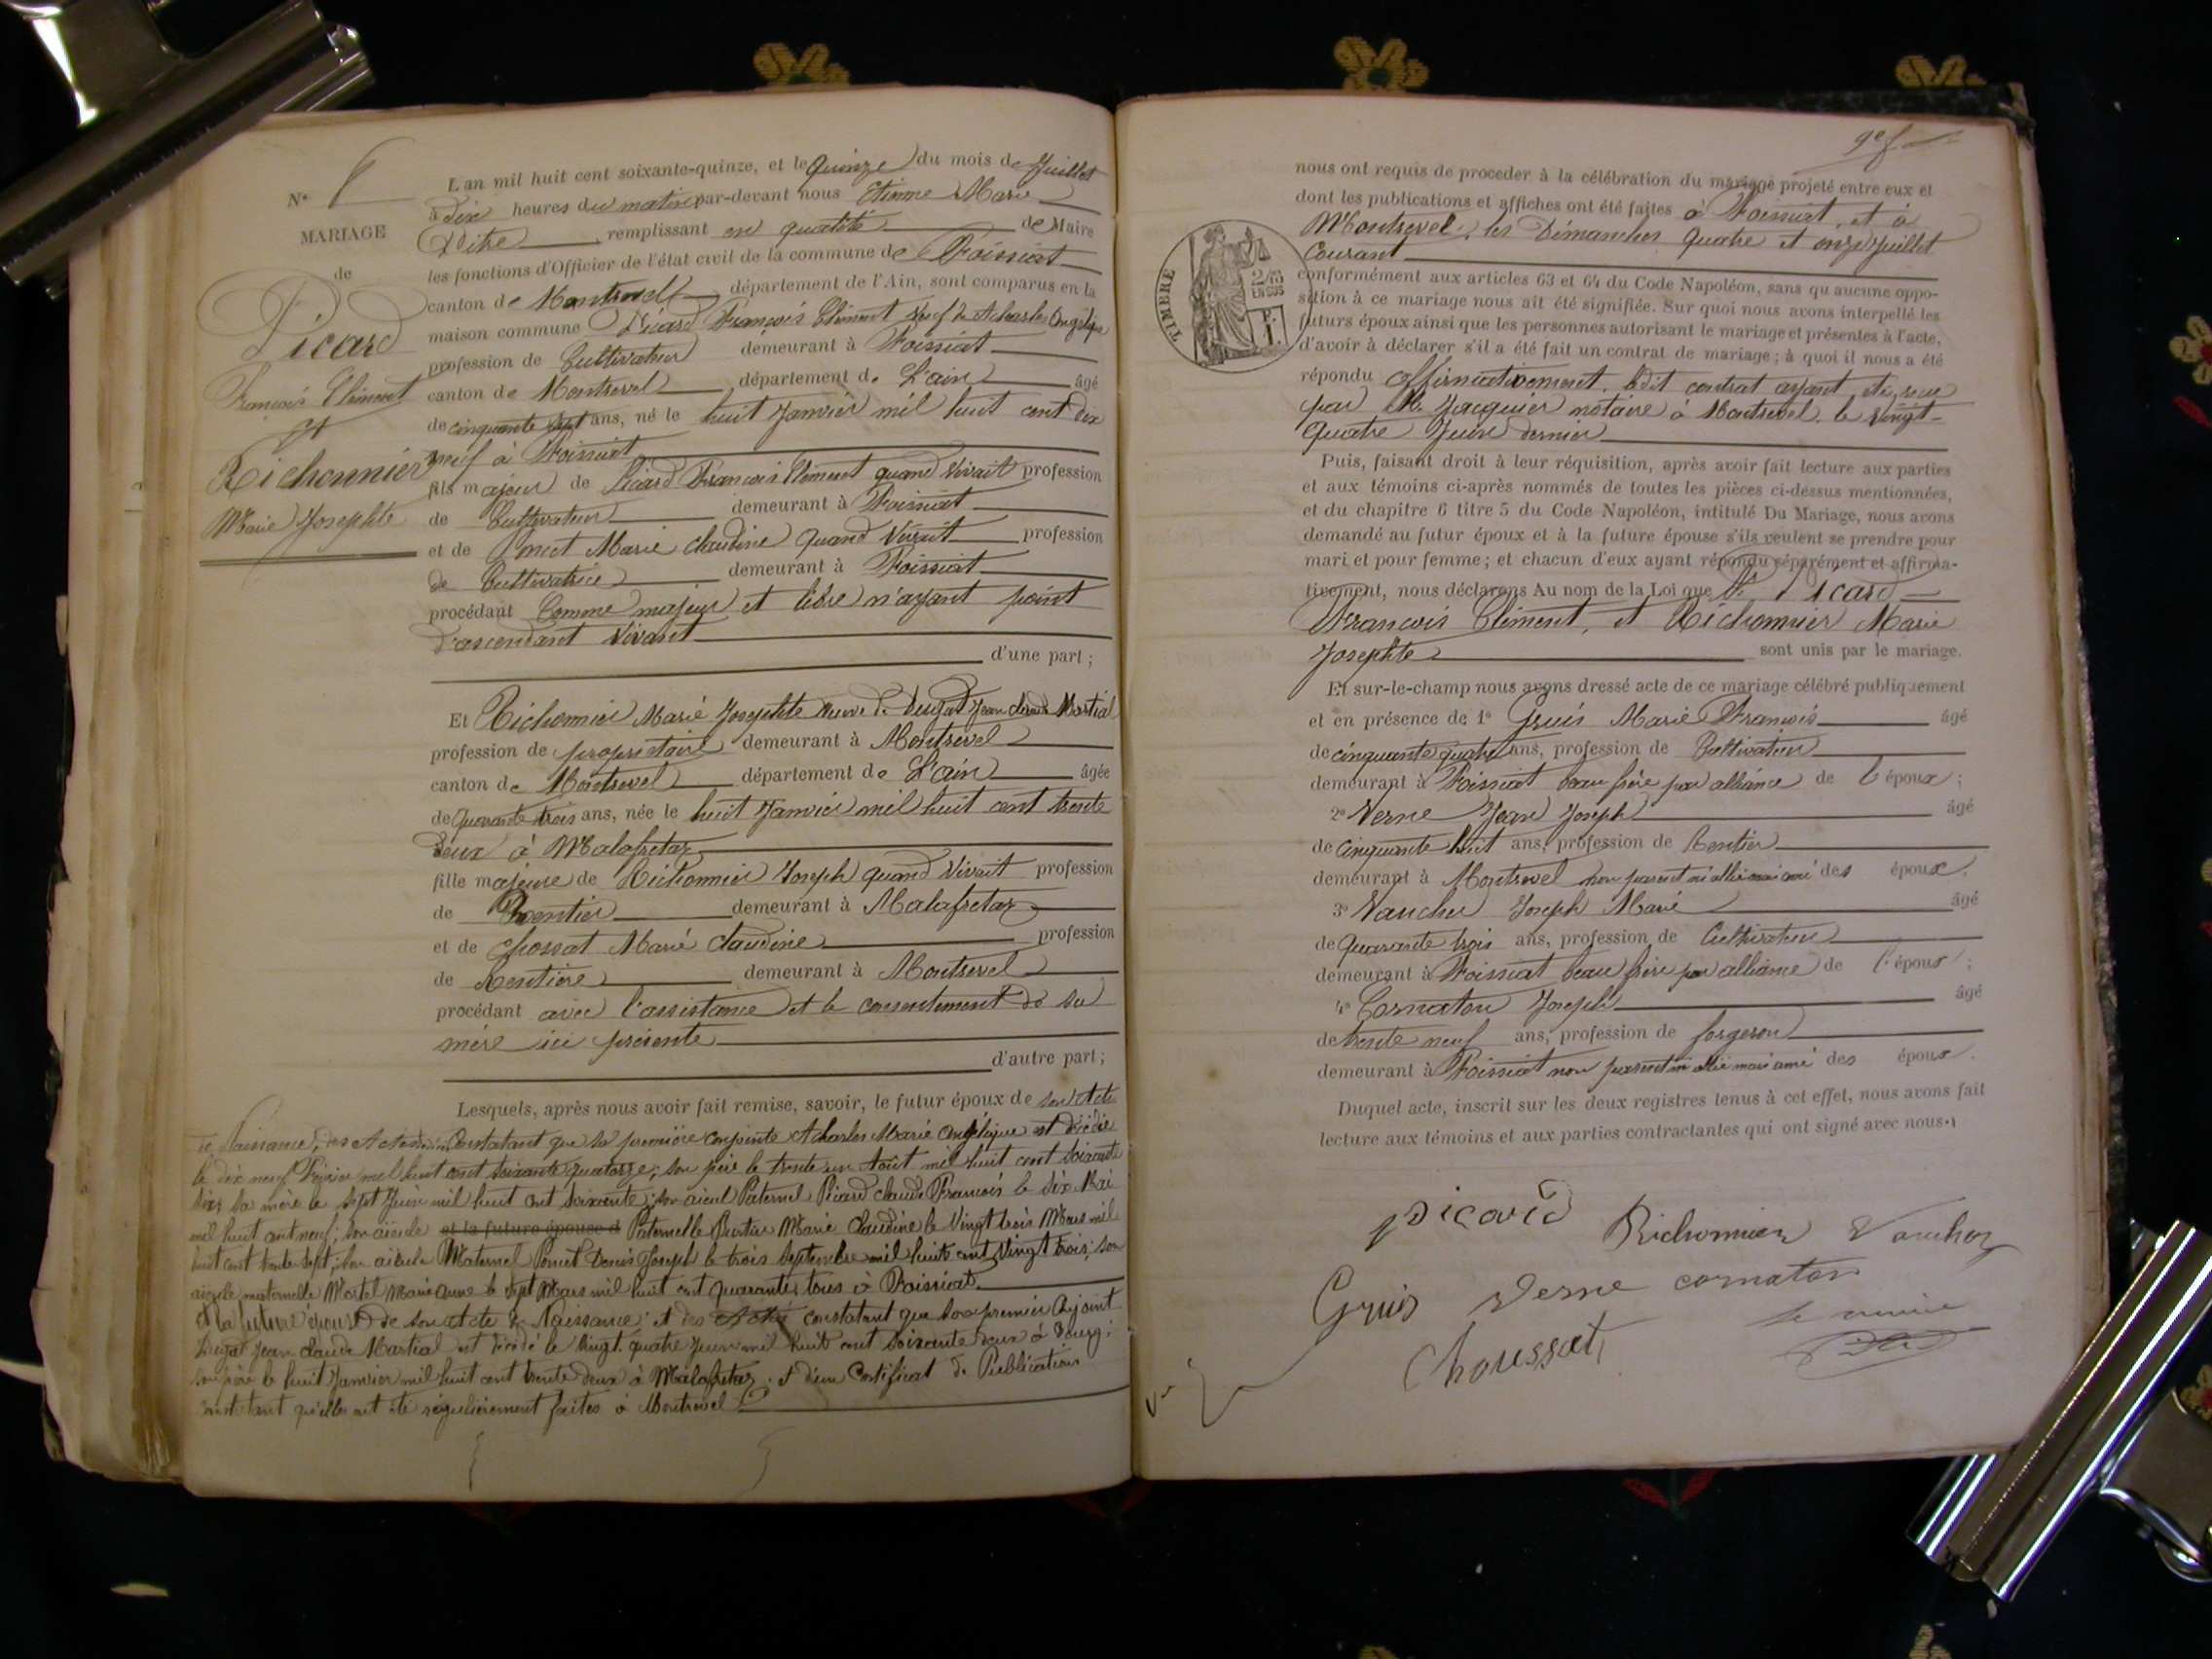 N° 6
MARIAGE
de
Picard
François Clément
et
Richonnier
Marie Josephte
L'an mil huit cent soixante-quinze, et le quinze du mois de Juillet
à dix heures du matin par-devant nous Etienne Marie
remplissant en qualité de Maire
les fonctions d'Officier de l'état civil de la commune de Foissiat
canton de Montrevel département de l'Ain, sont comparus en la
maison commune Picard François Clément Veuf de Acharles Angélique
profession de Cultivateur demeurant à Foissiat
canton de Montrevel département de L'ain âgé
de cinquante sept ans, né le huit Janvier mil huit cent dix
neuf à Foissiat
fils majeur de Picard François Clément quand vivait profession
de Cultivateur demeurant à Foissiat
et de Poncet Marie Claudine quand Vivait profession
de Cultivatrice demeurant à Foissiat
procédant Comme majeur et libre n'ayant point
d'ascendant Vivant
d'une part;
Et Richonnier Marie Josephte Veuve de Dugat Jean Claude Martial
profession de propriétaire demeurant à Montrevel
canton de Montrevel département de L'ain âgée
de Quarante trois ans, née le huit Janvier mil huit cent trente
deux à Malafretaz
fille majeure de Richonnier Joseph quand Vivait profession
de Rentier demeurant à Malafretaz
et de Chossat Marie Claudine profession
de Rentière demeurant à Montrevel
procédant avec l'assistance et le consentement de sa
mère ici présente
d'autre part;
Lesquels, après nous avoir fait remise, savoir, le futur époux de son Acte
de Naissance, des Actes Constatant que sa première conjointe Acharles Marie Angélique est décédée
le dix neuf Février mil huit cent soixante quatorze; son père le trente un Août mil huit cent soixante
six; sa mère le sept Juin mil huit cent soixante; son aieul Paternel Picard Claude François le dix Mai
mil huit cent neuf; son aieule et la future épouse d Paternelle Marie Claudine le Vingt trois Mars mil
huit cent trente sept; son aieule Maternel Poncet Denis Joseph le trois Septembre mil huit cent Vingt trois; son
aieule maternelle Martel Marie Anne le sept Mars mil huit cent quarante; tous à Foissiat.
et la future épouse de son Acte de Naissance; et des Actes constatant que son premier Conjoint
Dugat Jean Claude Martial est décédé le Vingt quatre Juin mil huit cent soixante deux à Bourg;
son père le huit Janvier mil huit cent trente deux à Malafretaz; et d'un Certificat de Publications
constatant qu'elles ont été régulièrement faites à Montrevel
9e f
nous ont requis de procéder à la célébration du mariage projeté entre eux et
dont les publications et affiches ont été faites à Foissiat, et à
Montrevel, les Dimanches Quatre et onze Juillet
Courant
TIMBRE
2/10 EN SUS
conformément aux articles 63 et 64 du Code Napoléon, sans qu'aucune oppo-
sition à ce mariage nous ait été signifiée. Sur quoi nous avons interpellé les
futurs époux ainsi que les personnes autorisant le mariage et présentes à l'acte,
d'avoir à déclarer s'il a été fait un contrat de mariage; à quoi il nous a été
répondu affirmativement, ledit contrat ayant été reçu
par M. Jacquier notaire à Montrevel, le Vingt-
Quatre Juin dernier
Puis, faisant droit à leur réquisition, après avoir fait lecture aux parties
et aux témoins ci-après nommés de toutes les pièces ci-dessus mentionnées,
et du chapitre 6 titre 5 du Code Napoléon, intitulé Du Mariage, nous avons
demandé au futur époux et à la future épouse s'ils veulent se prendre pour
mari et pour femme; et chacun d'eux ayant répondu séparément et affirma-
tivement, nous déclarons Au nom de la Loi que Picard
François Clément, et Richonnier Marie
Josephte sont unis par le mariage.
Et sur-le-champ nous avons dressé acte de ce mariage célébré publiquement
et en présence de 1° Gruis Marie François âgé
de cinquante quatre ans, profession de Cultivateur
demeurant à Foissiat beau frère par alliance de l'époux;
2° Verne Jean Joseph âgé
de cinquante huit ans, profession de Rentier
demeurant à Montrevel non parent ni allié mais ami des époux.
3° Vaucher Joseph Marie âgé
de quarante trois ans, profession de Cultivateur
demeurant à Foissiat beau frère par alliance de l'époux;
4° Cornaton Joseph âgé
de trente neuf ans, profession de forgeron
demeurant à Foissiat non parent ni allié mais ami des époux.
Duquel acte, inscrit sur les deux registres tenus à cet effet, nous avons fait
lecture aux témoins et aux parties contractantes qui ont signé avec nous.
Picard
Richonnier Vaucher
Gruis Verne cornaton
Choussat
le maire